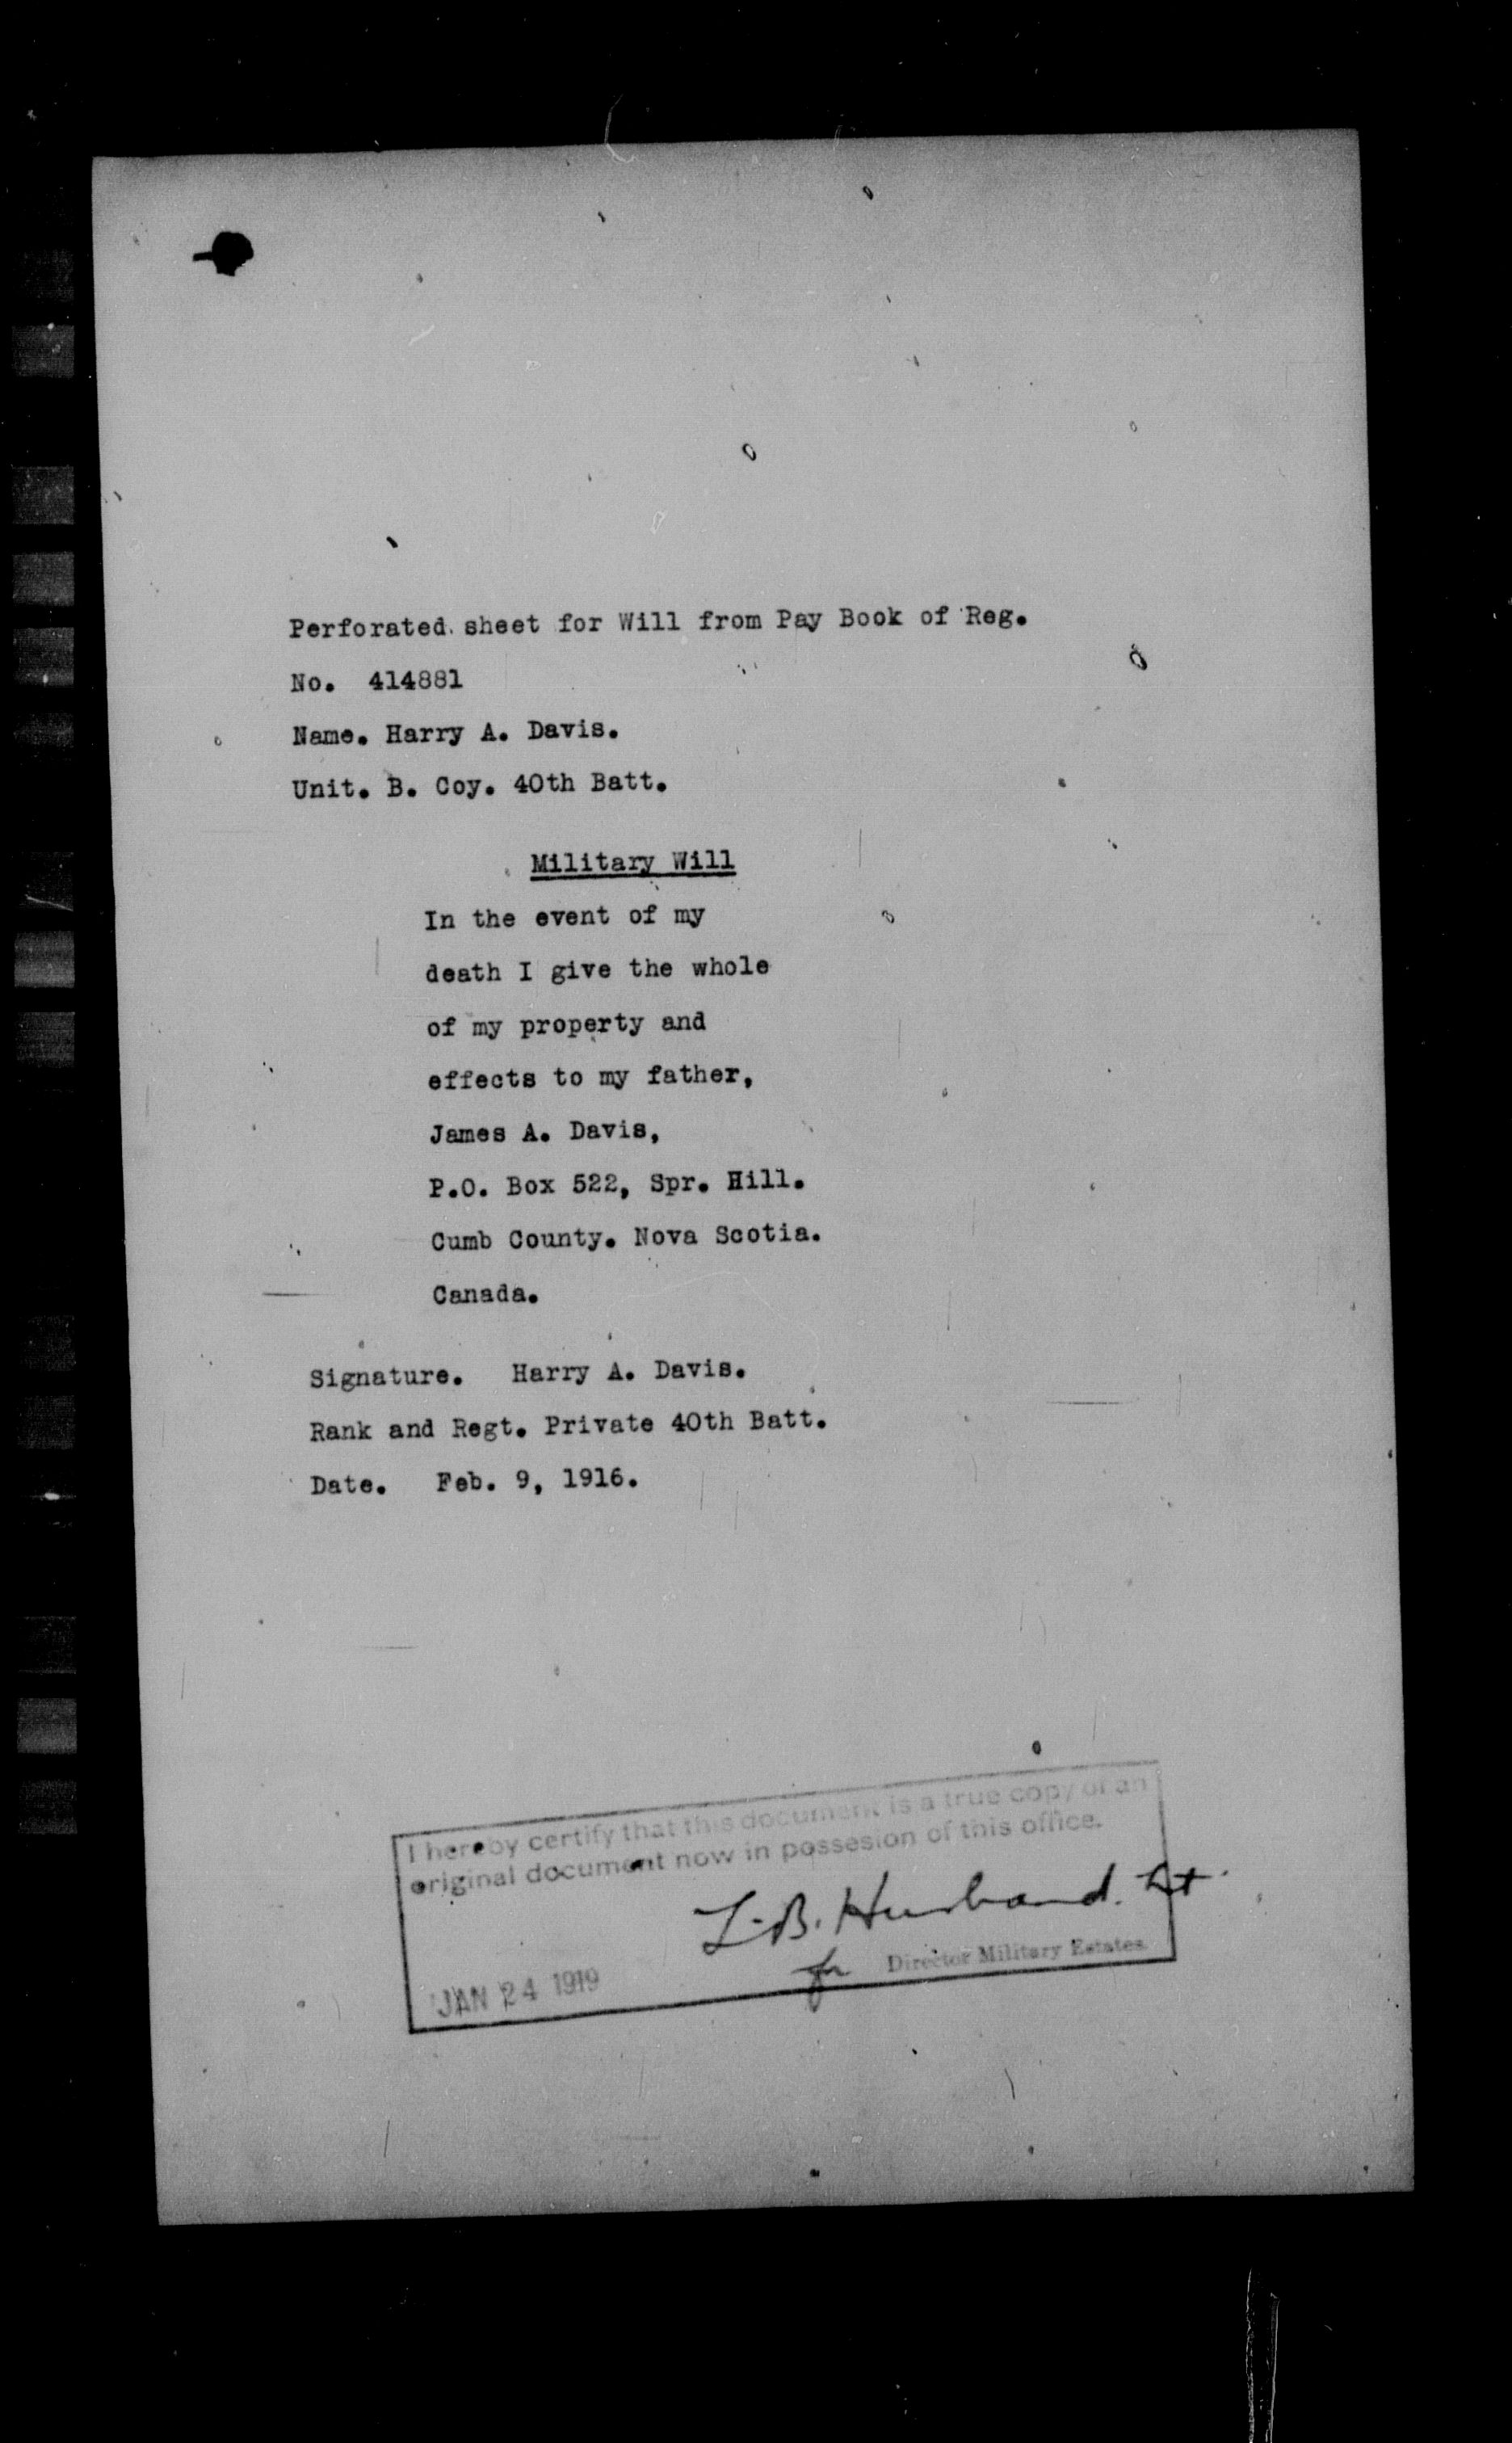 Perforated sheet for Will from Pay Book of Reg.
No. 414881
Name. Harry A. Davis.
Unit. B. Coy. 40th Batt.
Military Will
In the event of my
death I give the whole
of my property and
effects to my father,
James A. Davis,
P.O. Box 522, Spr. Hill.
Cumb County. Nova Scotia.
Canada.
Signature. Harry A. Davis.
Rank and Regt. Private 40th Batt.
Date. Feb. 9, 1916.
I hereby certify that this document is a true copy of an
original document now in possesion of this office.
L.B. Husband. Lt.
for Director Military Estates
JAN 24 1919